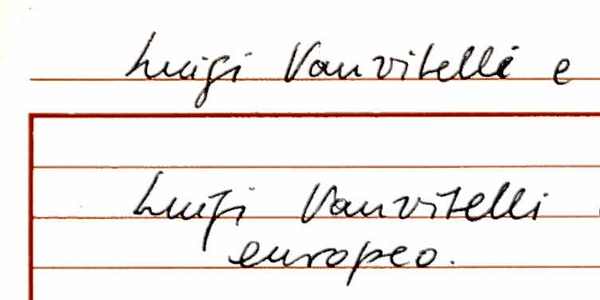 Luigi Vanvitelli e
Luigi Vanvitelli
europeo.